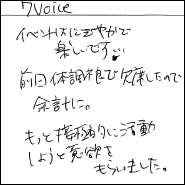 7Voice
イベントはにぎやかで
楽しいです…
前回体調不良で欠席したので
余計に。
もっと積極的に活動
しようと意欲を
もらいました。